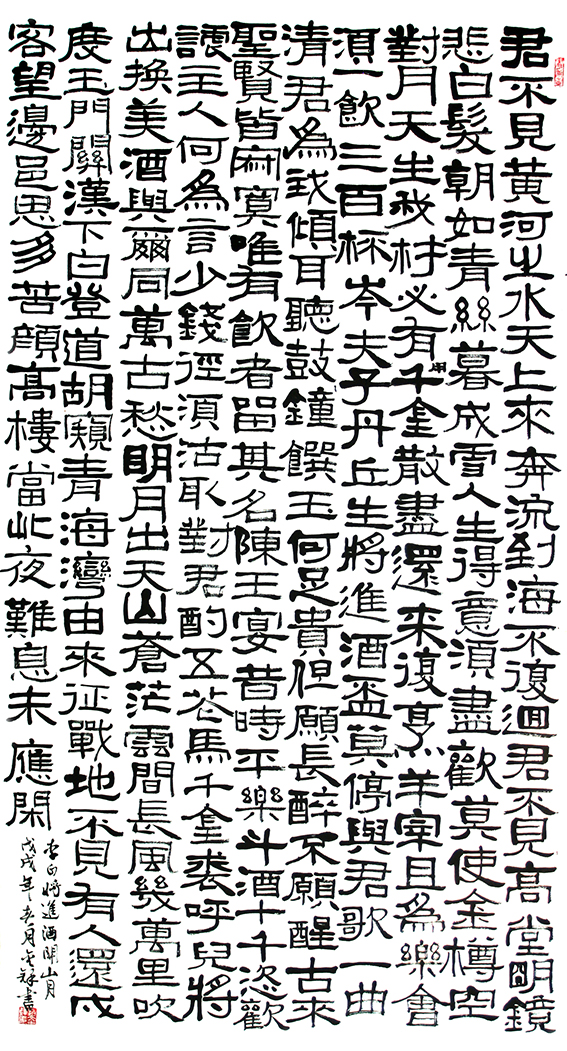 君不見黃河之水天上來奔流到海不復迴君不見高堂明鏡
悲白髮朝如青絲暮成雪人生得意須盡歡莫使金樽空
對月天生我材必有用千金散盡還來復烹羊宰且為樂會
須一飲三百杯岑夫子丹丘生將進酒盃莫停與君歌一曲
清君為我傾耳聽鼓鐘饌玉何足貴但願長醉不願醒古來
聖賢皆寂寞唯有飲者留其名陳王宴昔時平樂斗酒十千恣歡
謔主人何為言少錢徑須沽取對君酌五花馬千金裘呼兒將
出換美酒與爾同萬古愁明月出天山蒼茫雲間長風幾萬里吹
度玉門關漢下白登道胡窺青海灣由來征戰地不見有人還戍
客望邊邑思多苦顏高樓當此夜難息未應閑
李白將進酒關山月
戊戌年春月書